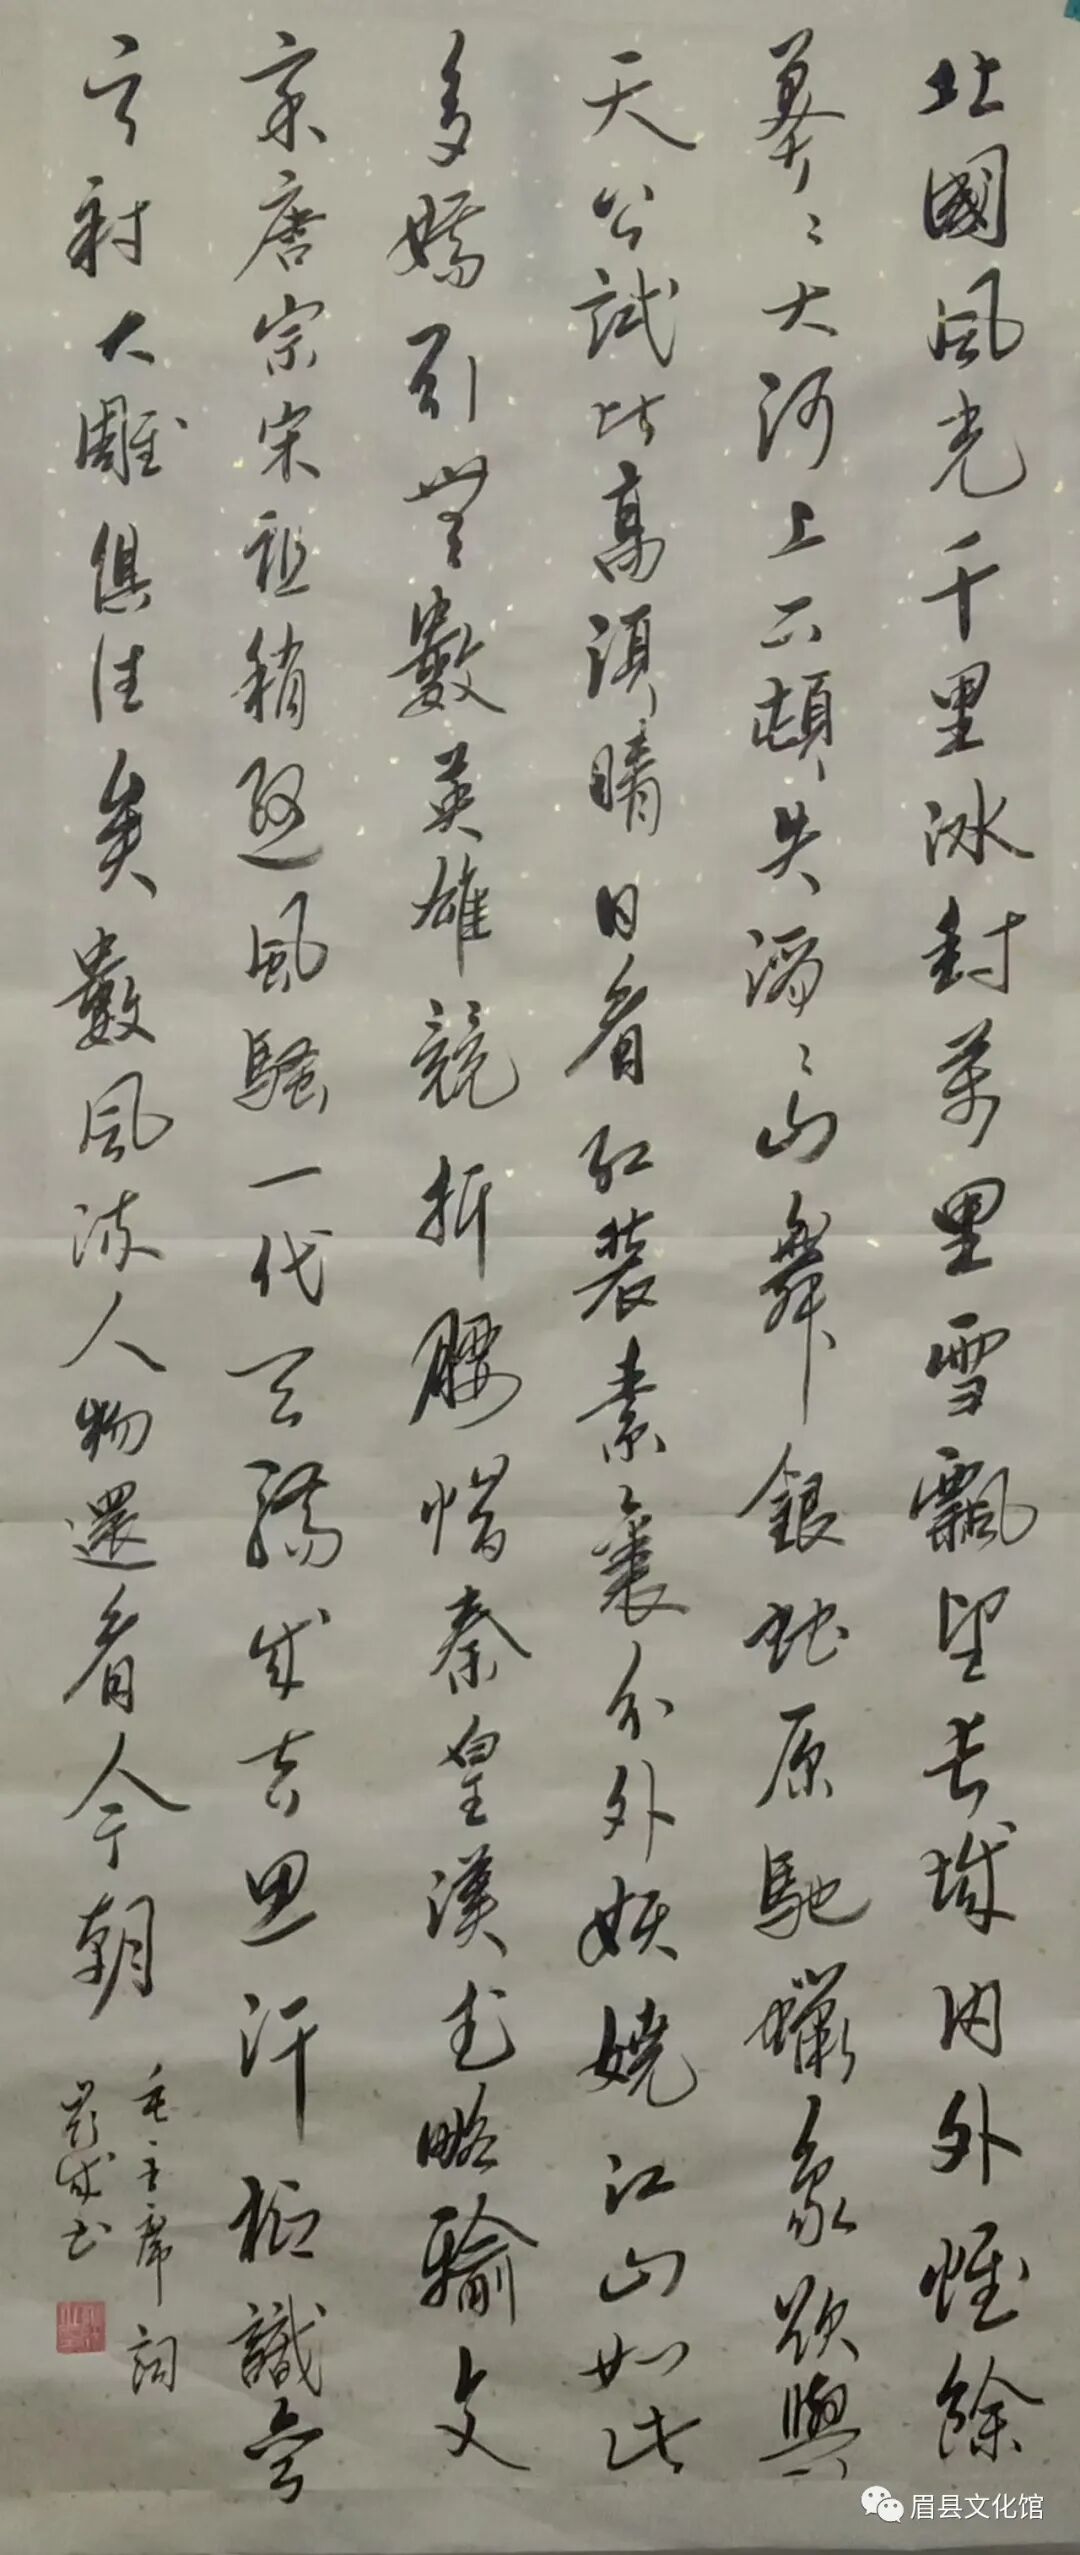 北國風光千里冰封萬里雪飄望長城内外惟餘
莽〻大河上下頓失滔〻山舞銀蛇原馳蠟象欲與
天公試比高須晴日看紅裝素裹分外妖嬈江山如此
多嬌引無數英雄競折腰惜秦皇漢武略輸文
采唐宗宋祖稍遜風騷一代天驕成吉思汗衹識彎
弓射大雕俱往矣數風流人物還看今朝
毛主席詞
成书
眉县文化馆